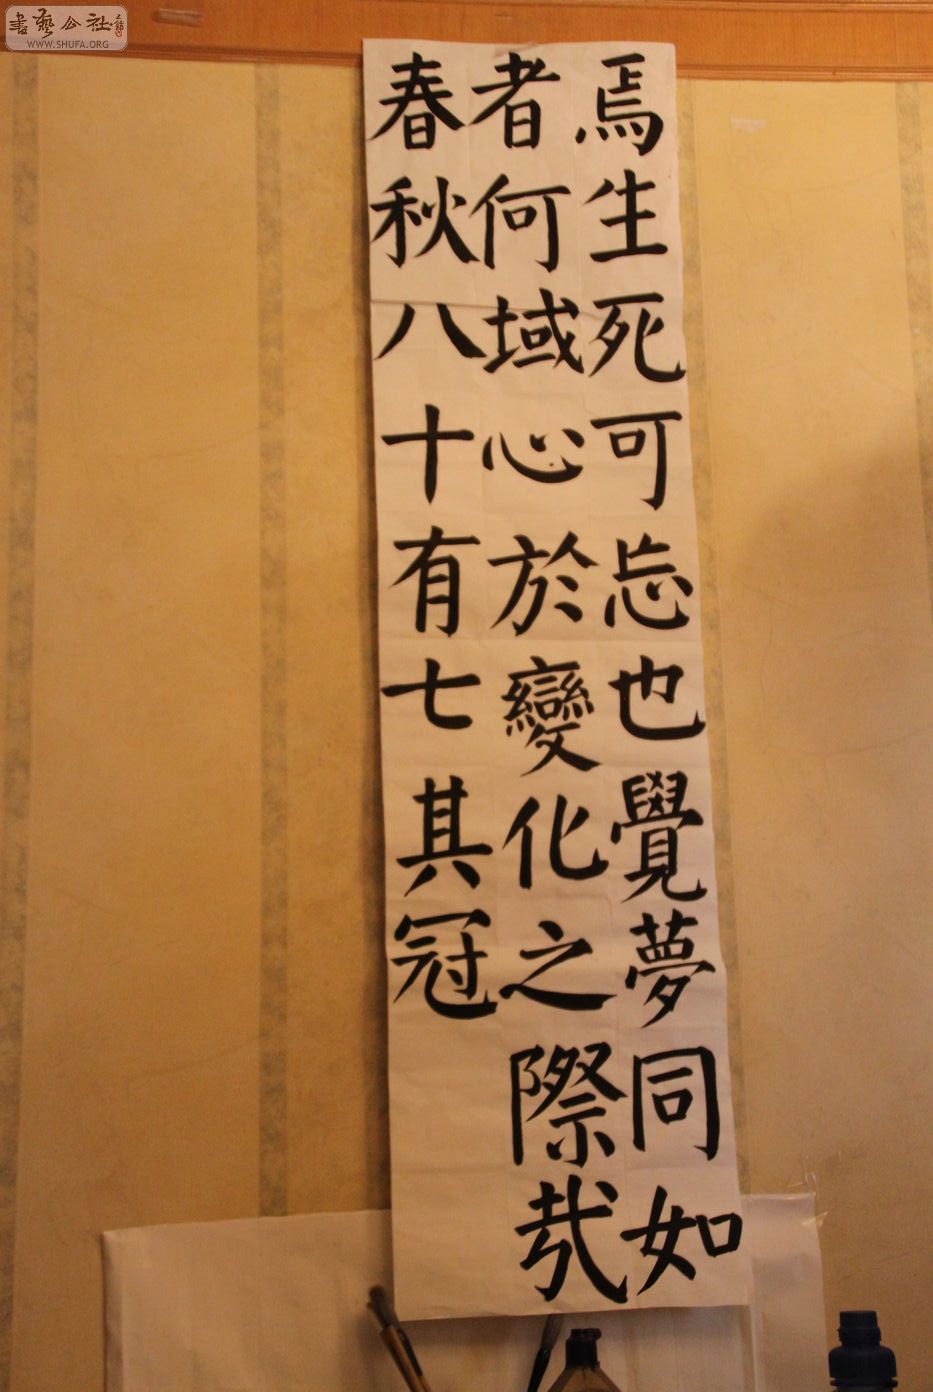 焉生死可忘也覺夢同如
者何域心於變化之際哉
春秋八十有七其冠
書藝公社
WWW.SHUFA.ORG